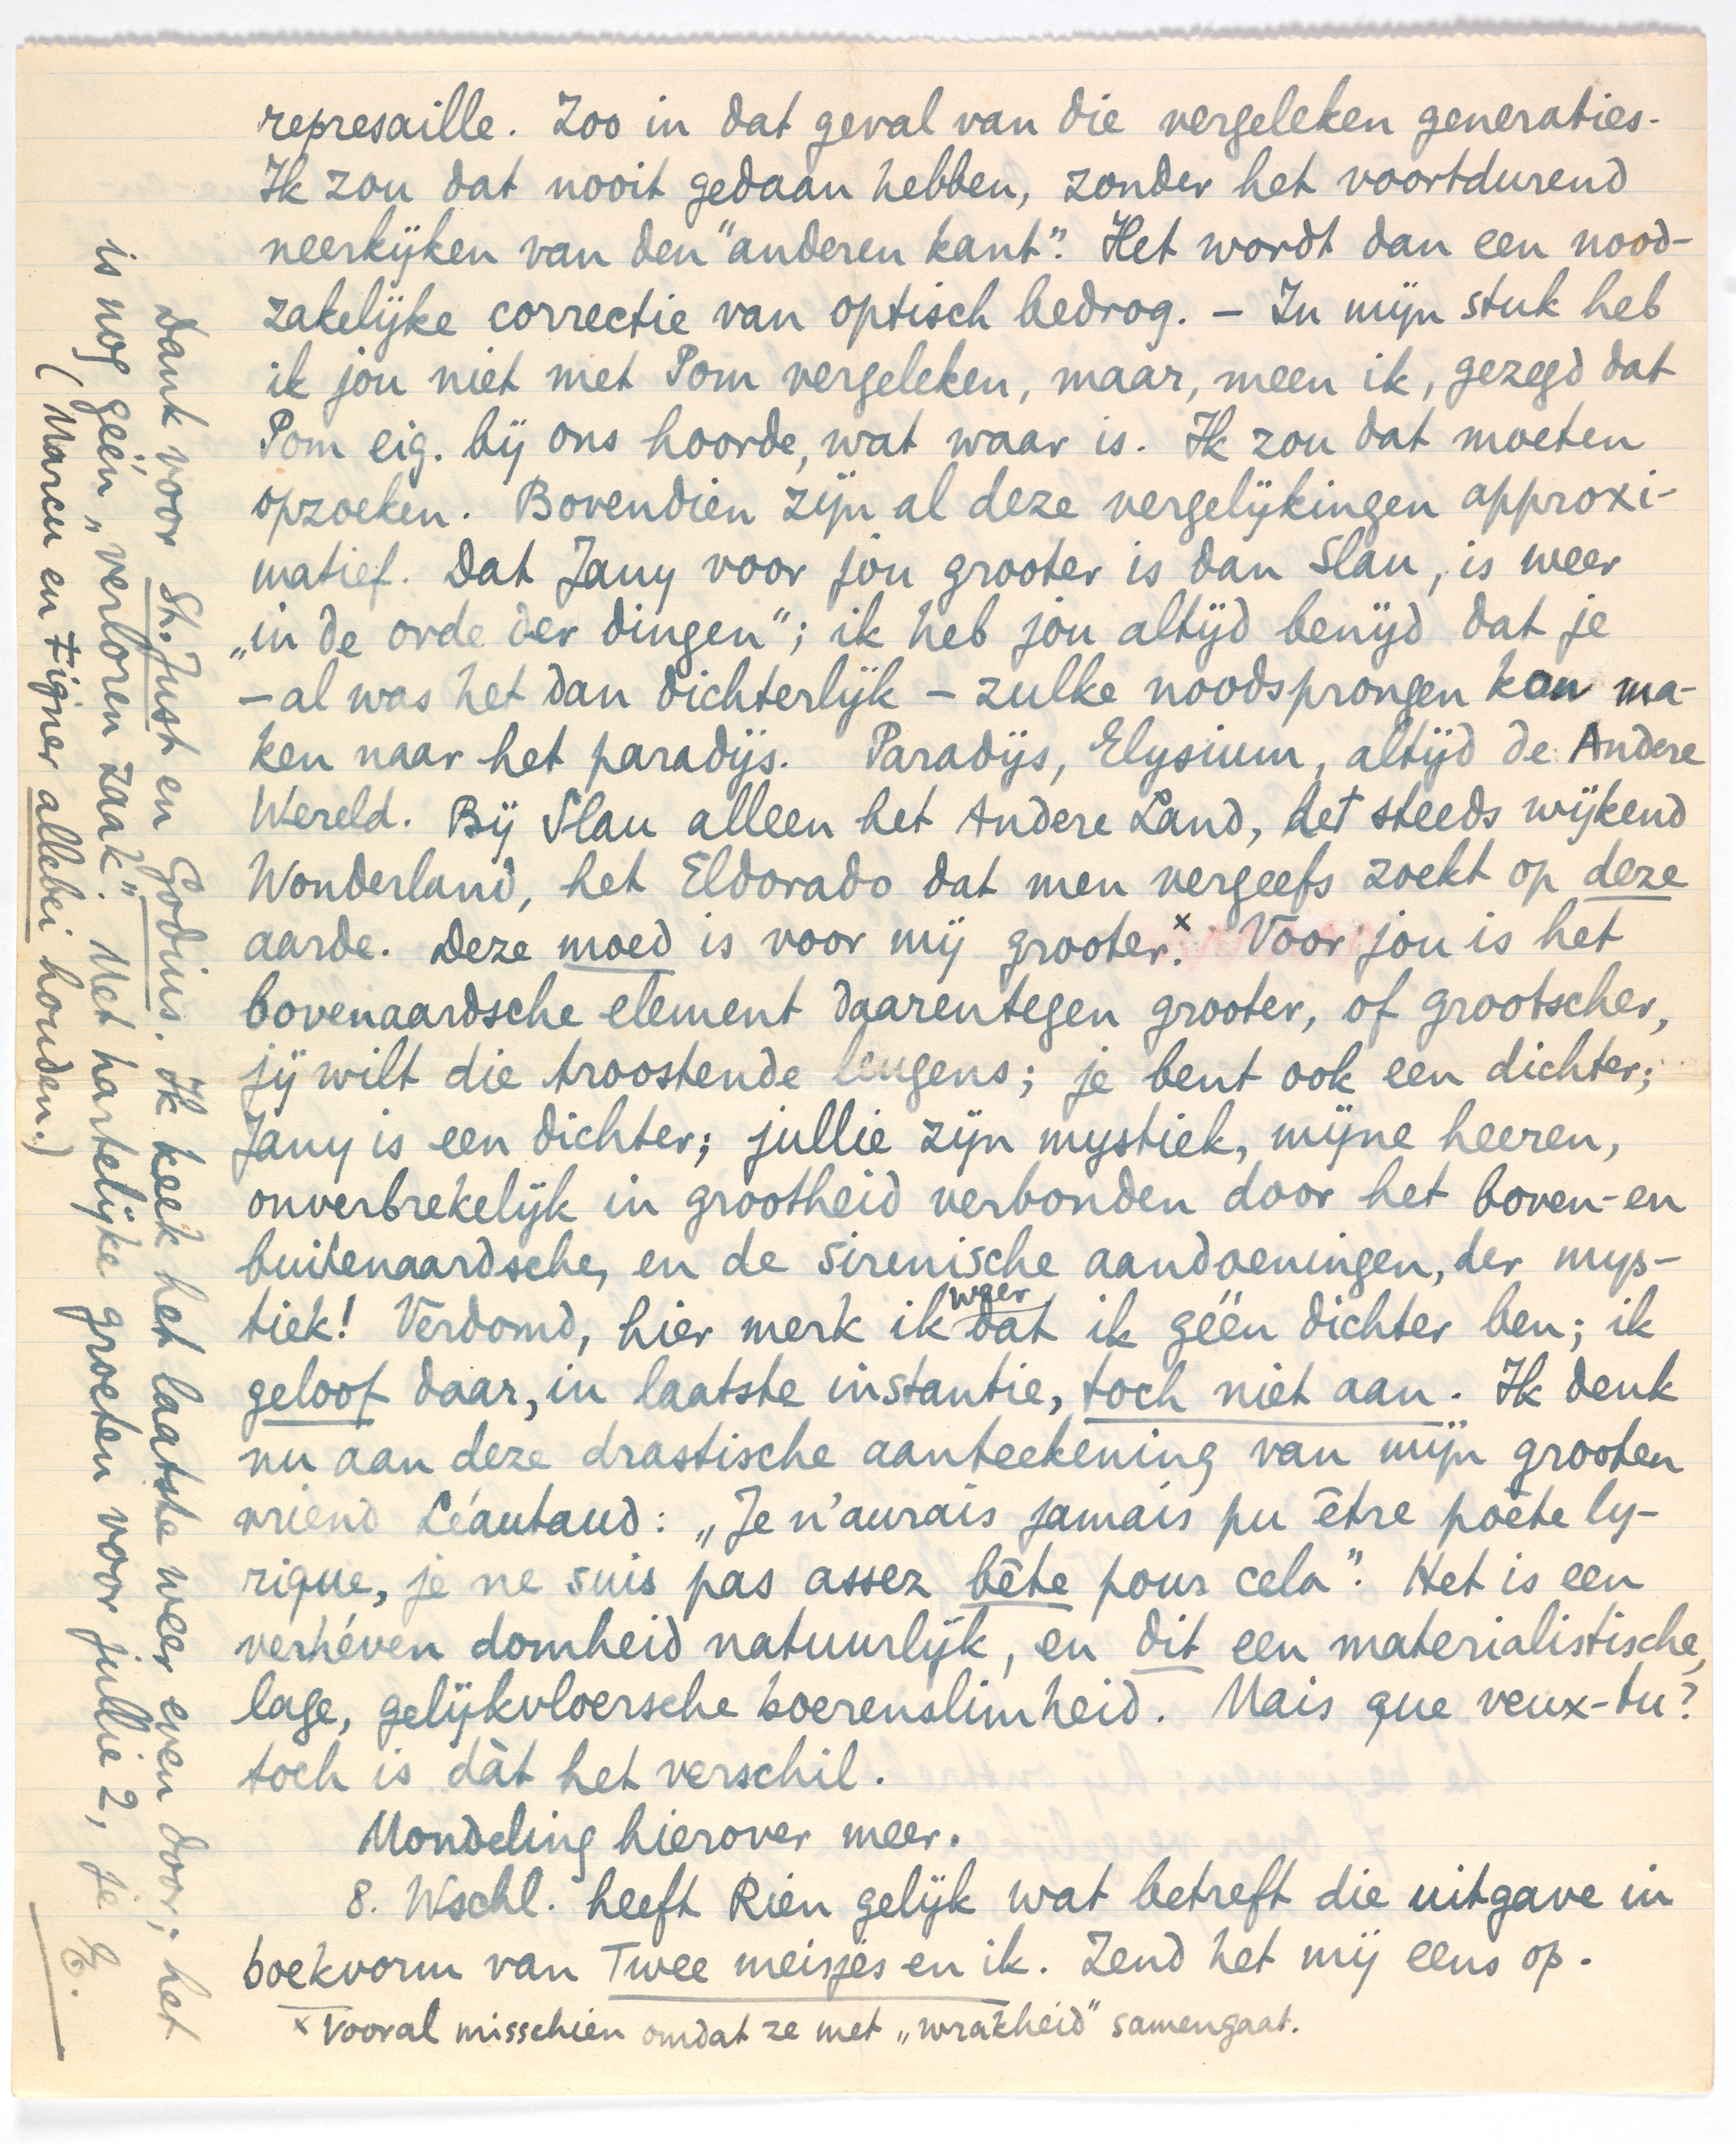 represaille. Zoo in dat geval van die vergeleken generaties.
Ik zou dat nooit gedaan hebben, zonder het voortdurend
neerkijken van den "anderen kant". Het wordt dan een nood-
zakelijke correctie van optisch bedrog. – In mijn stuk heb
ik jou niet met Pom vergeleken, maar, meen ik, gezegd dat
Pom eig. bij ons hoorde, wat waar is. Ik zou dat moeten
opzoeken. Bovendien zijn al deze vergelijkingen approxi-
matief. Dat Jany voor jou grooter is dan Slau, is weer
„in de orde der dingen"; ik heb jou altijd benijd dat je
– al was het dan dichterlijk – zulke noodsprongen kon ma-
ken naar het paradijs. Paradijs, Elysium, altijd de Andere
Wereld. Bij Slau alleen het Andere Land, het steeds wijkend
Wonderland, het Eldorado dat men vergeefs zoekt op deze
aarde. Deze moed is voor mij grooter.x Voor jou is het
bovenaardsche element daarentegen grooter, of grootscher,
jij wilt die troostende leugens; je bent ook een dichter;
Jany is een dichter; jullie zijn mystiek, mijne heeren,
onverbrekelijk in grootheid verbonden door het boven- en
buitenaardsche, en de sirenische aandoeningen, der mys-
tiek! Verdomd, hier merk ik weer dat ik géén dichter ben; ik
geloof daar, in laatste instantie, toch niet aan. Ik denk
nu aan deze drastische aanteekening van mijn grooten
vriend Léautaud: „Je n'aurais jamais pu être poète ly-
rique, je ne suis pas assez bête pour cela". Het is een
verhéven domheid natuurlijk, en dit een materialistische,
lage, gelijkvloersche boerenslimheid. Mais que veux-tu?
toch is dàt het verschil.
Mondeling hierover meer.
8. Wschl. heeft Rien gelijk wat betreft die uitgave in
boekvorm van Twee meisjes en ik. Zend het mij eens op.
x Vooral misschien omdat ze met „wrakheid" samengaat.
Dank voor St. Just en Godius. Ik keek het laatste weer even door; het
is nog géén „verloren zaak". Met hartelijke groeten voor jullie 2, je E.
(Marcu en Figner allebei houden.)